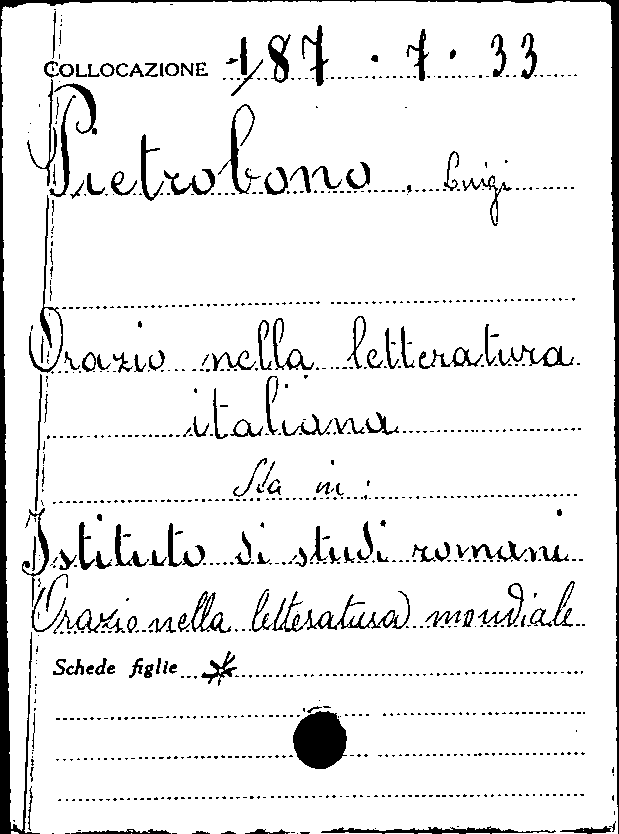 COLLOCAZIONE 187 . 7 . 33
Pietrobono . Luigi
Orazio nella letteratura
italiana
Sta in :
Istituto di studi romani
Orazio nella letteratura mondiale
Schede figlie *